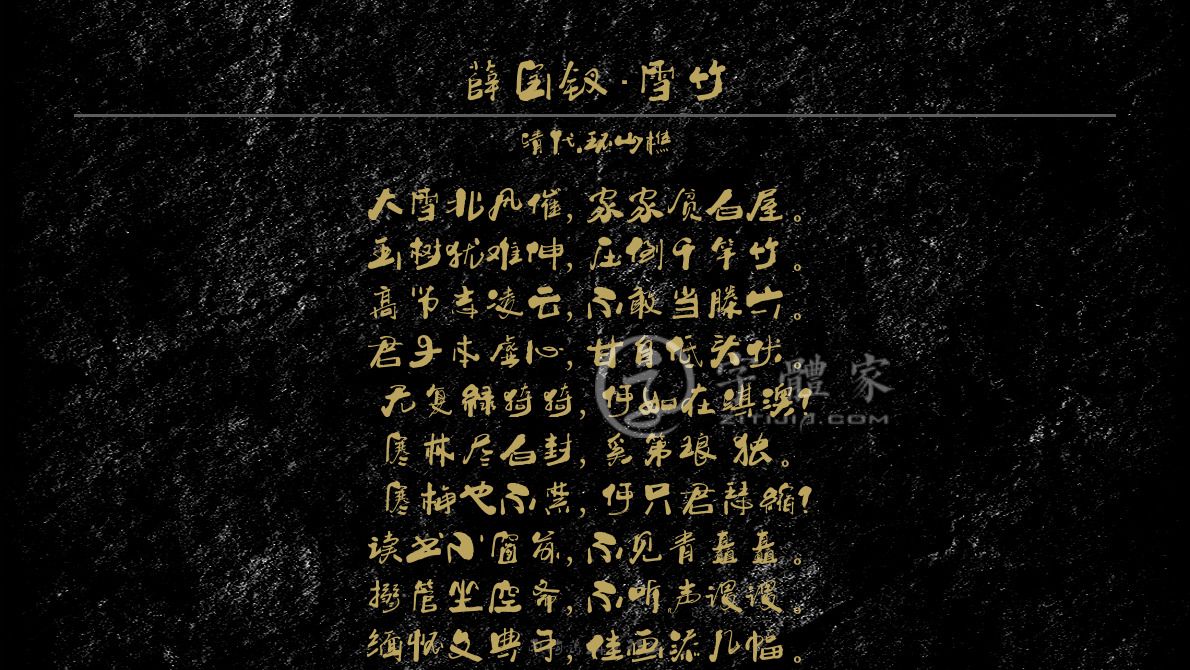 薛宝钗·雪竹
清代.环山樵
大雪北风催,家家贫白屋。
玉树犹难伸,压倒千竿竹。
高节志凌云,不敢当滕六。
君子本虚心,甘自低头伏。
无复绿猗猗,何如在淇澳?
寒林尽白封,奚第琅 独。
寒梅也不禁,何只君缩?
读书小窗前,不见青矗矗。
搦管坐空斋,不听声谡谡。
缅怀文与可,佳画添几幅。
字體家
ZITIJIA.COM